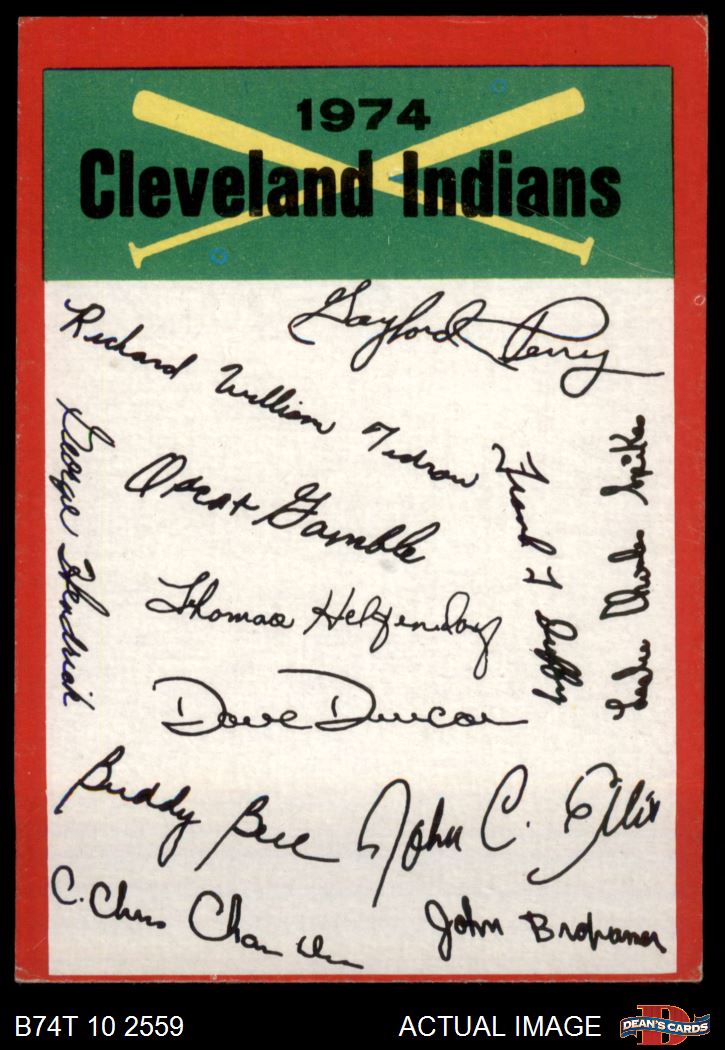 1974
Cleveland Indians
Gaylord Perry
Richard William Tidrow
George Hendrick
Oscar Gamble
Frank T Duffy
Leslie Charles Spikes
Thomas Hilgendorf
Dave Duncan
Buddy Bell
John C. Ellis
C. Chris Chambliss
John Brohamer
B74T 10 2559
ACTUAL IMAGE
D
DEAN'S CARDS